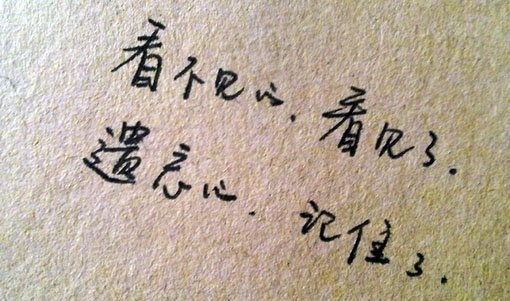 看不见的，看见了。
遗忘的，记住了。